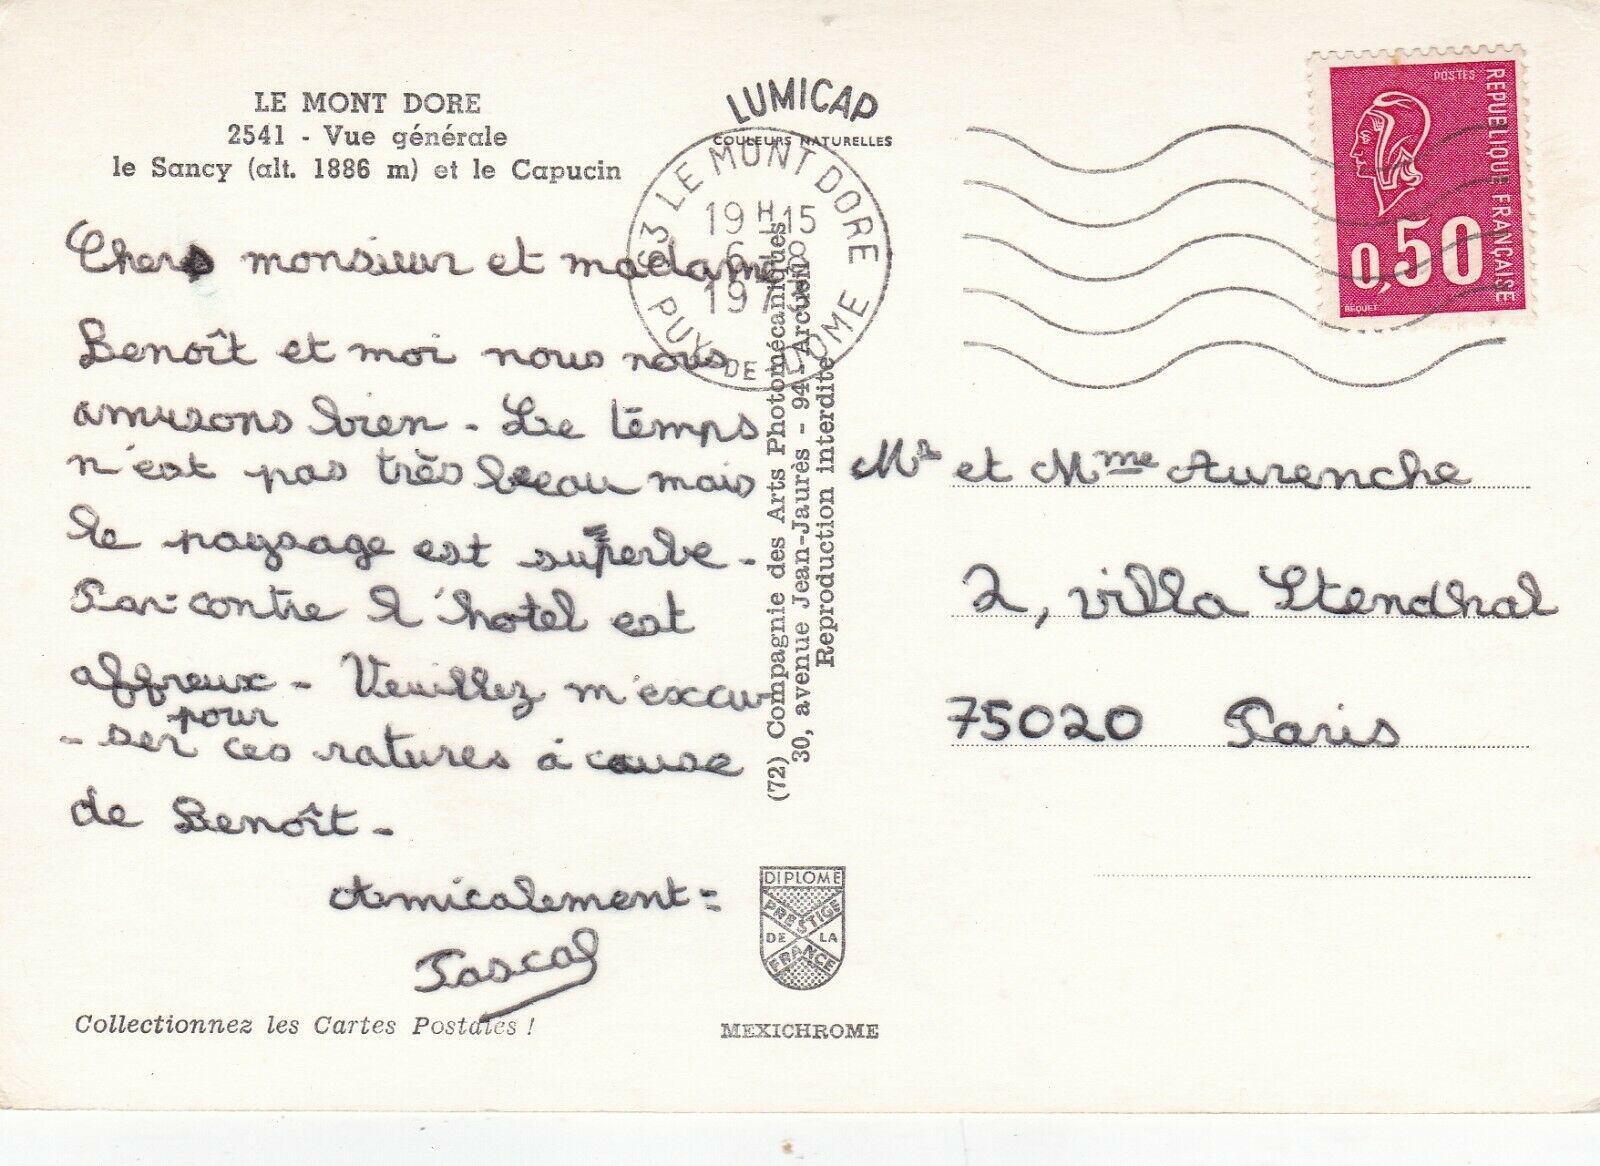 LE MONT DORE
2541 - Vue générale
le Sancy (alt. 1886 m) et le Capucin
Chers monsieur et madame
Benoît et moi nous nous
amusons bien - Le temps
n'est pas très beau mais
le paysage est superbe -
Par-contre l'hotel est
affreux - Veuillez m'excu-
pour
-ser ces ratures à cause
de Benoît -
Amicalement =
Pascal
Collectionnez les Cartes Postales !
LUMICAP
COULEURS NATURELLES
63 LE MONT DORE
19 H 15
6 - 8
197
PUY DE DOME
(72) Compagnie des Arts Photomécaniques
30, avenue Jean-Jaurès - 94 - Arcueil
Reproduction interdite
DIPLOME
PRESTIGE
DE LA
FRANCE
MEXICHROME
POSTES
REPUBLIQUE FRANÇAISE
0,50
BEQUET
Mr et Mme Aurenche
2, villa Stendhal
75020 Paris